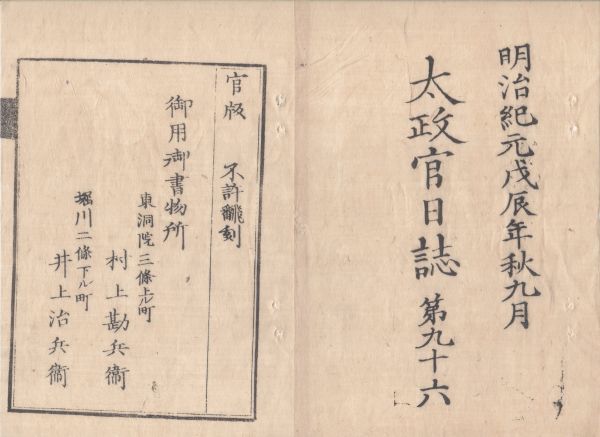 明治紀元戊辰年秋九月
太政官日誌 第九十六
官版 不許飜刻
御用御書物所
東洞院三條上ル町
村上勘兵衞
堀川二條下ル町
井上治兵衞